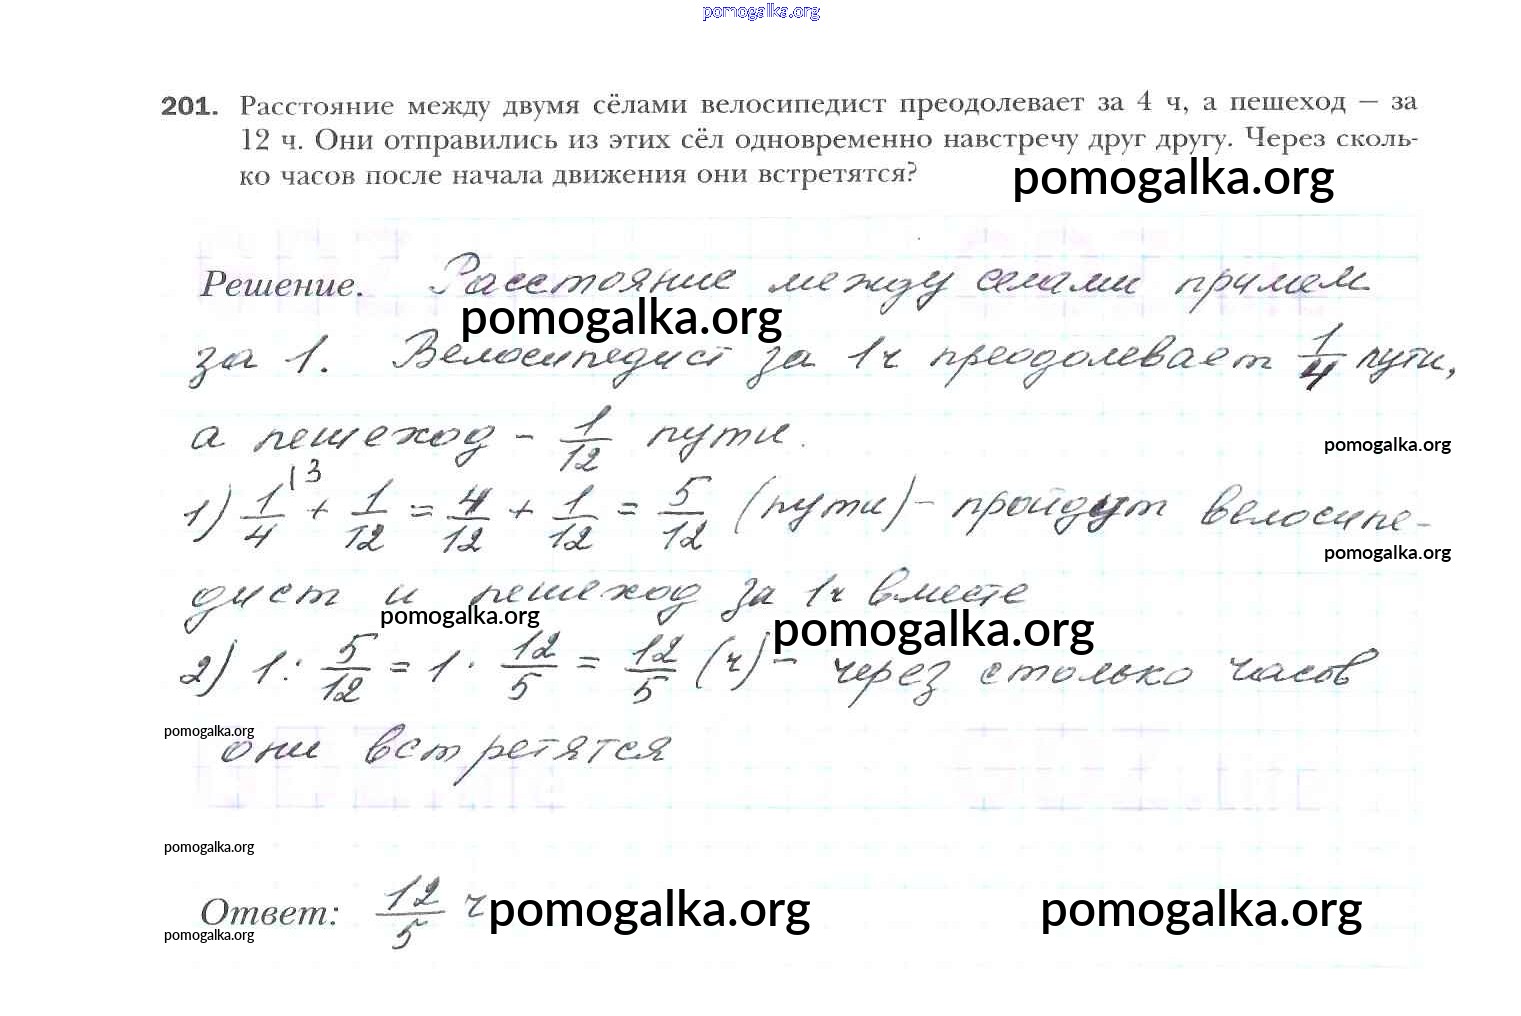 pomogalka.org
201. Расстояние между двумя сёлами велосипедист преодолевает за 4 ч, а пешеход — за
12 ч. Они отправились из этих сёл одновременно навстречу друг другу. Через сколь-
ко часов после начала движения они встретятся?
pomogalka.org
Решение. Расстояние между селами примем
pomogalka.org
за 1. Велосипедист за 1ч преодолевает 1/4 пути,
а пешеход - 1/12 пути.
pomogalka.org
1) 1/4 |3 + 1/12 = 4/12 + 1/12 = 5/12 (пути) - пройдут велосипе-
pomogalka.org
дист и пешеход за 1ч вместе
pomogalka.org
pomogalka.org
2) 1 : 5/12 = 1 · 12/5 = 12/5 (ч) - через столько часов
pomogalka.org
они встретятся
pomogalka.org
Ответ: 12/5 ч
pomogalka.org
pomogalka.org
pomogalka.org